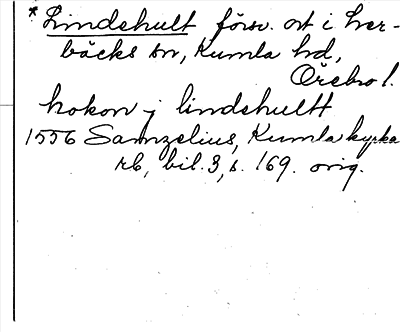 * Lindehult försv. ort i Lver-
bäcks sn, Kumla hd,
Örebro l.
hokon j lindehultt
1556 Samzelius, Kumla kyrka
rb, bil. 3, s. 169. orig.